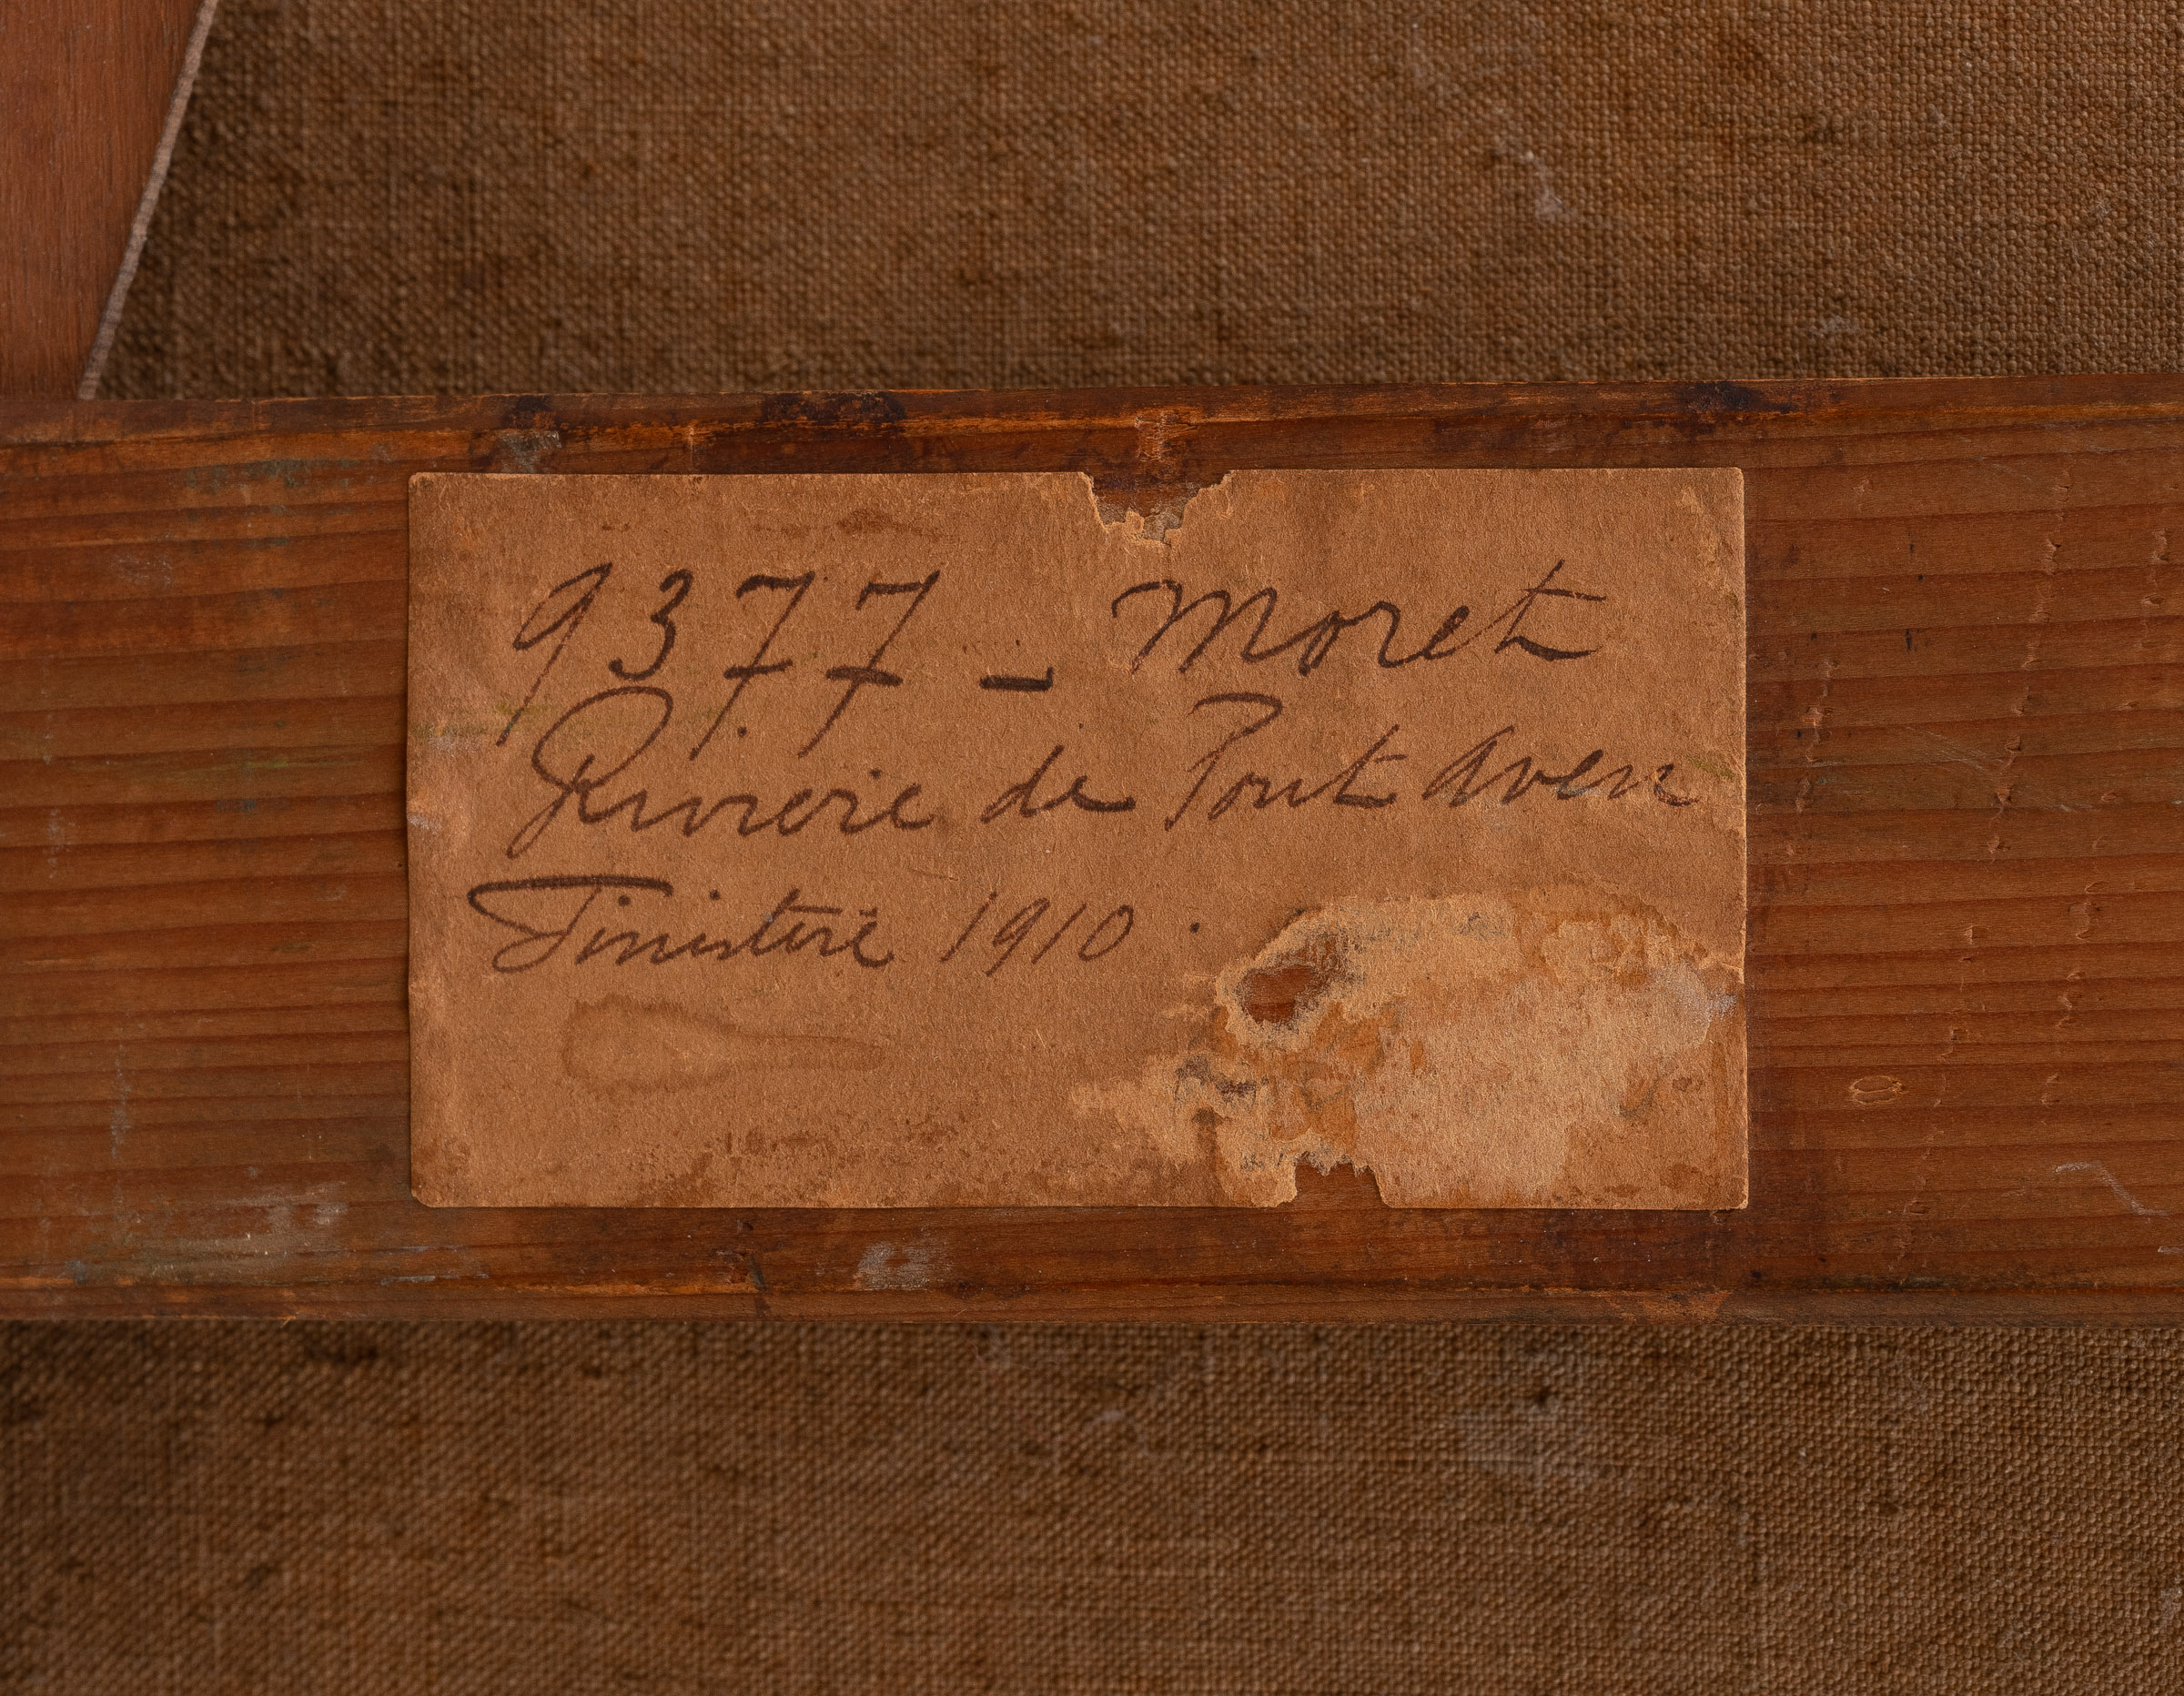 9377 - Moret
Riviere de Pont Aven
Finistère 1910.